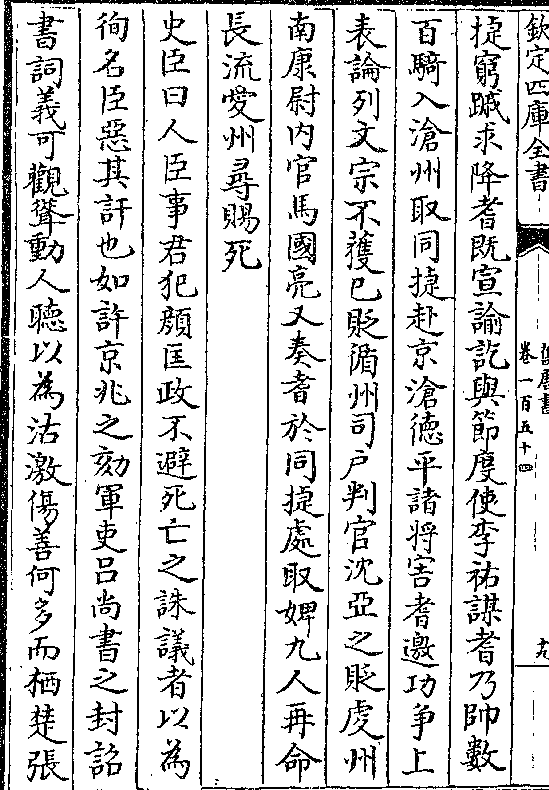 欽定四庫全書
舊唐書
卷一百五十四
九
捷窮蹴求降耆既宣諭訖與節度使李祐謀耆乃帥數
百騎入滄州取同㨗赴京滄徳平諸將害耆邀功争上
表論列文宗不獲已貶循州司户判官沈亞之貶虔州
南康尉内官馬國亮又奏耆於同捷處取婢九人再命
長流愛州尋賜死
史臣曰人臣事君犯顔匡政不避死亡之誅議者以為
徇名臣惡其訐也如許京兆之劾軍吏吕尚書之封詔
書詞義可觀聳動人聽以為沽激傷善何多而栖楚張